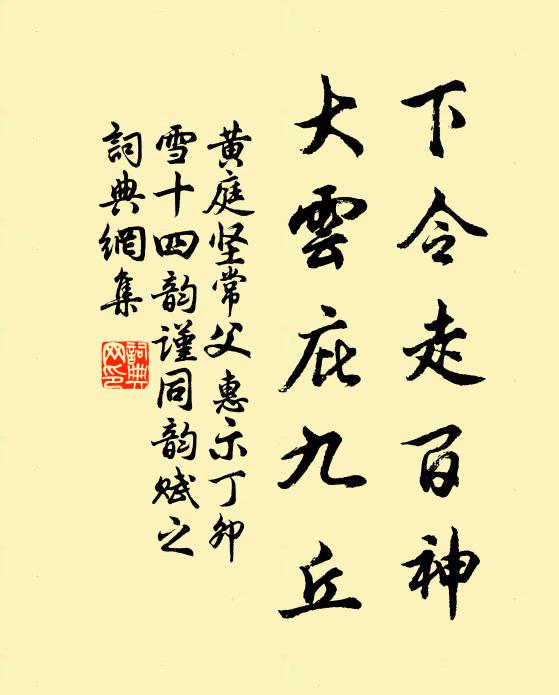 下令走百神
大雲庇九丘
黄庭坚常父惠示丁卯
雪十四韵谨同韵赋之
詞典網集
詞典網印